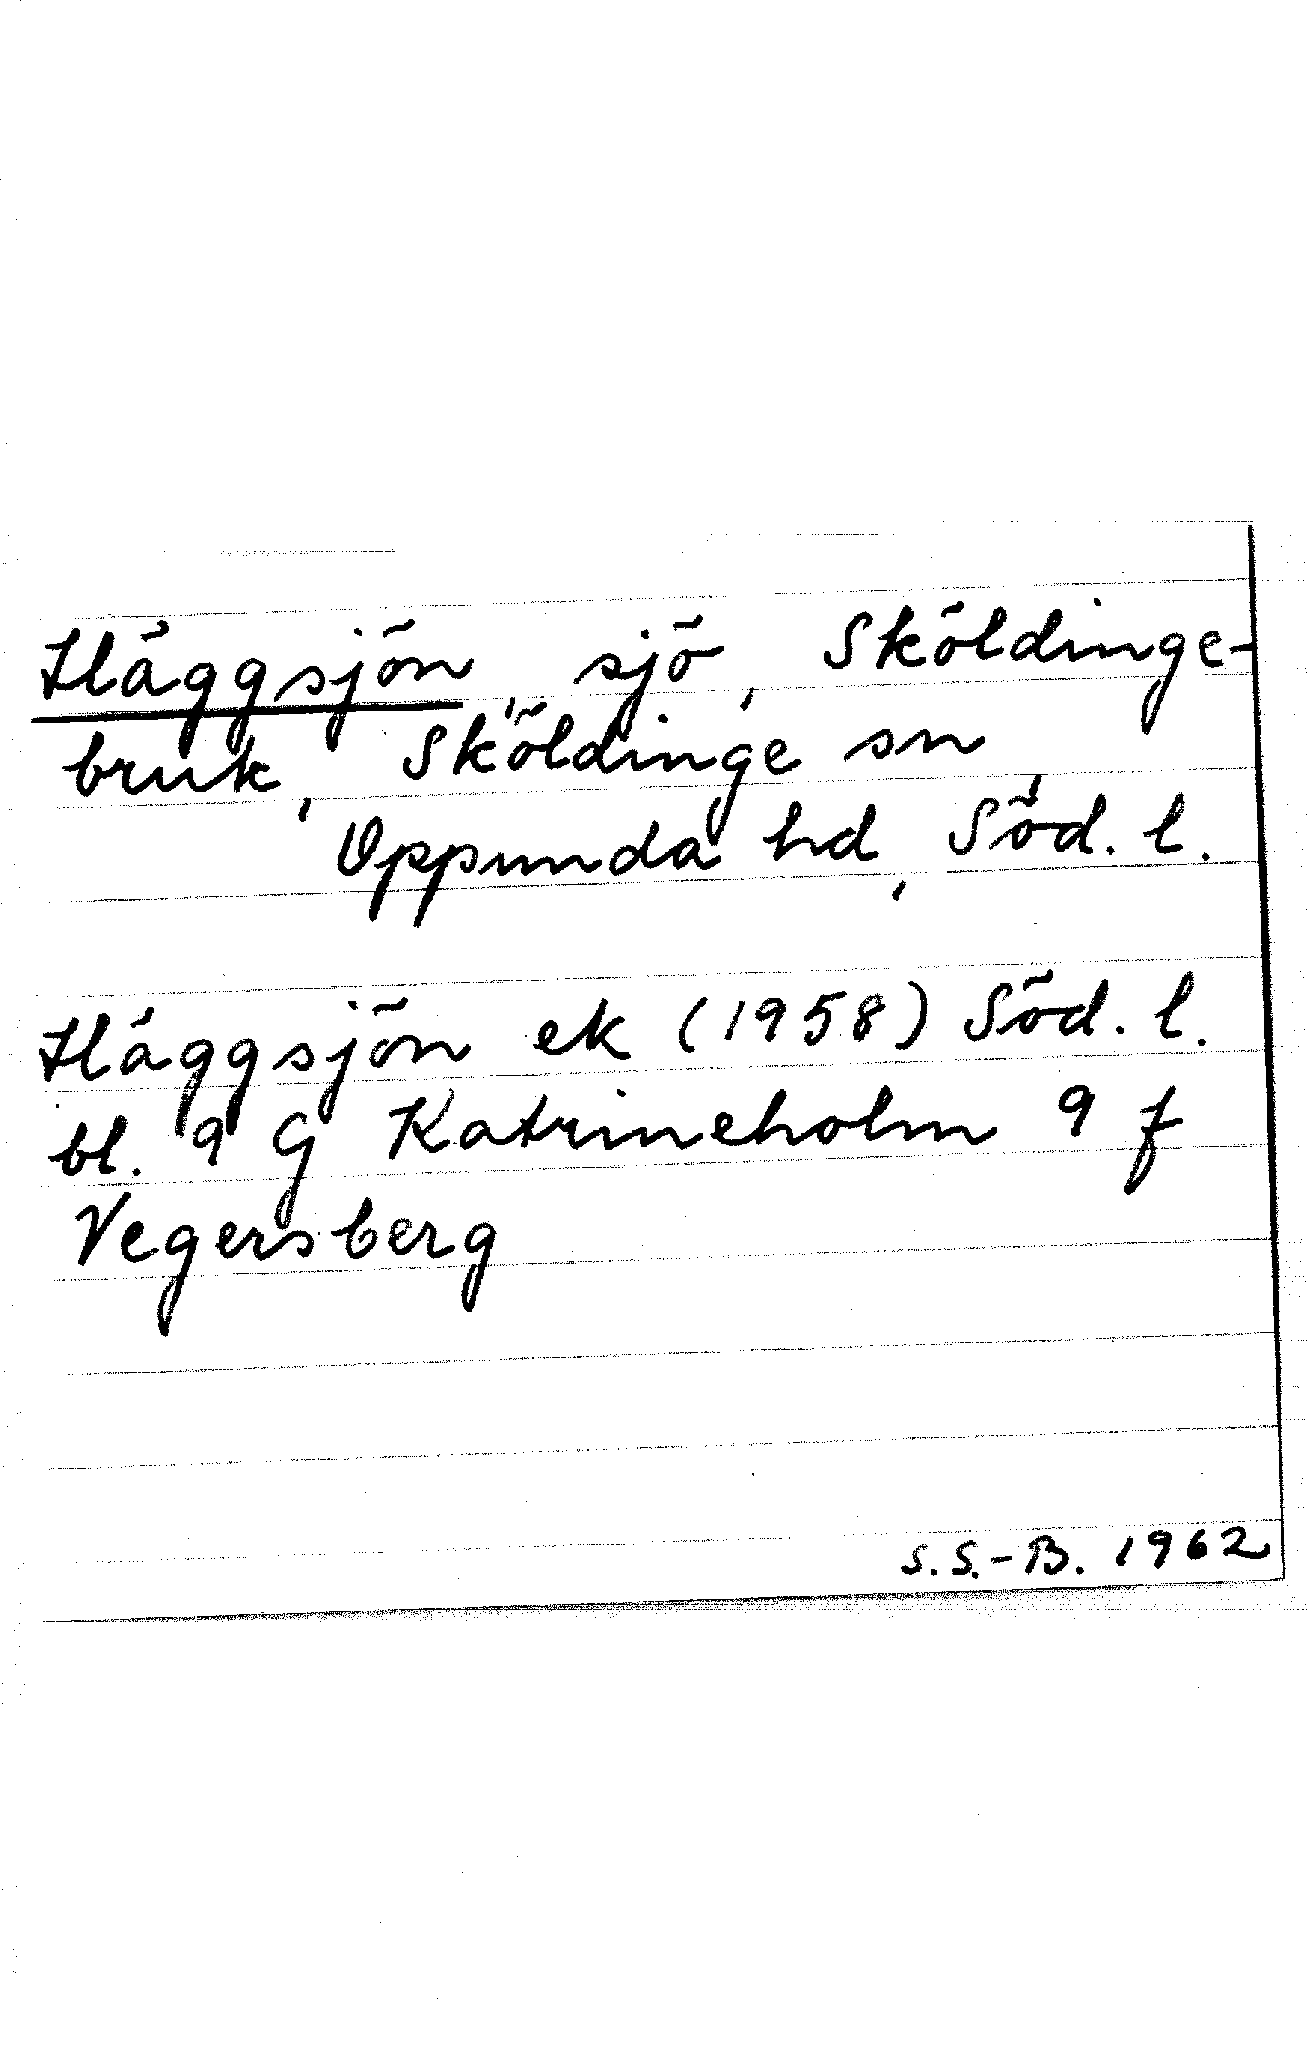 Häggsjön, sjö, Sköldinge-
bruk, Sköldinge sn,
Oppunda hd, Söd. l.
Häggsjön ek (1958) Söd. l.
bl. 9 G Katrineholm 9 f
Vegersberg
S. S.-B. 1962